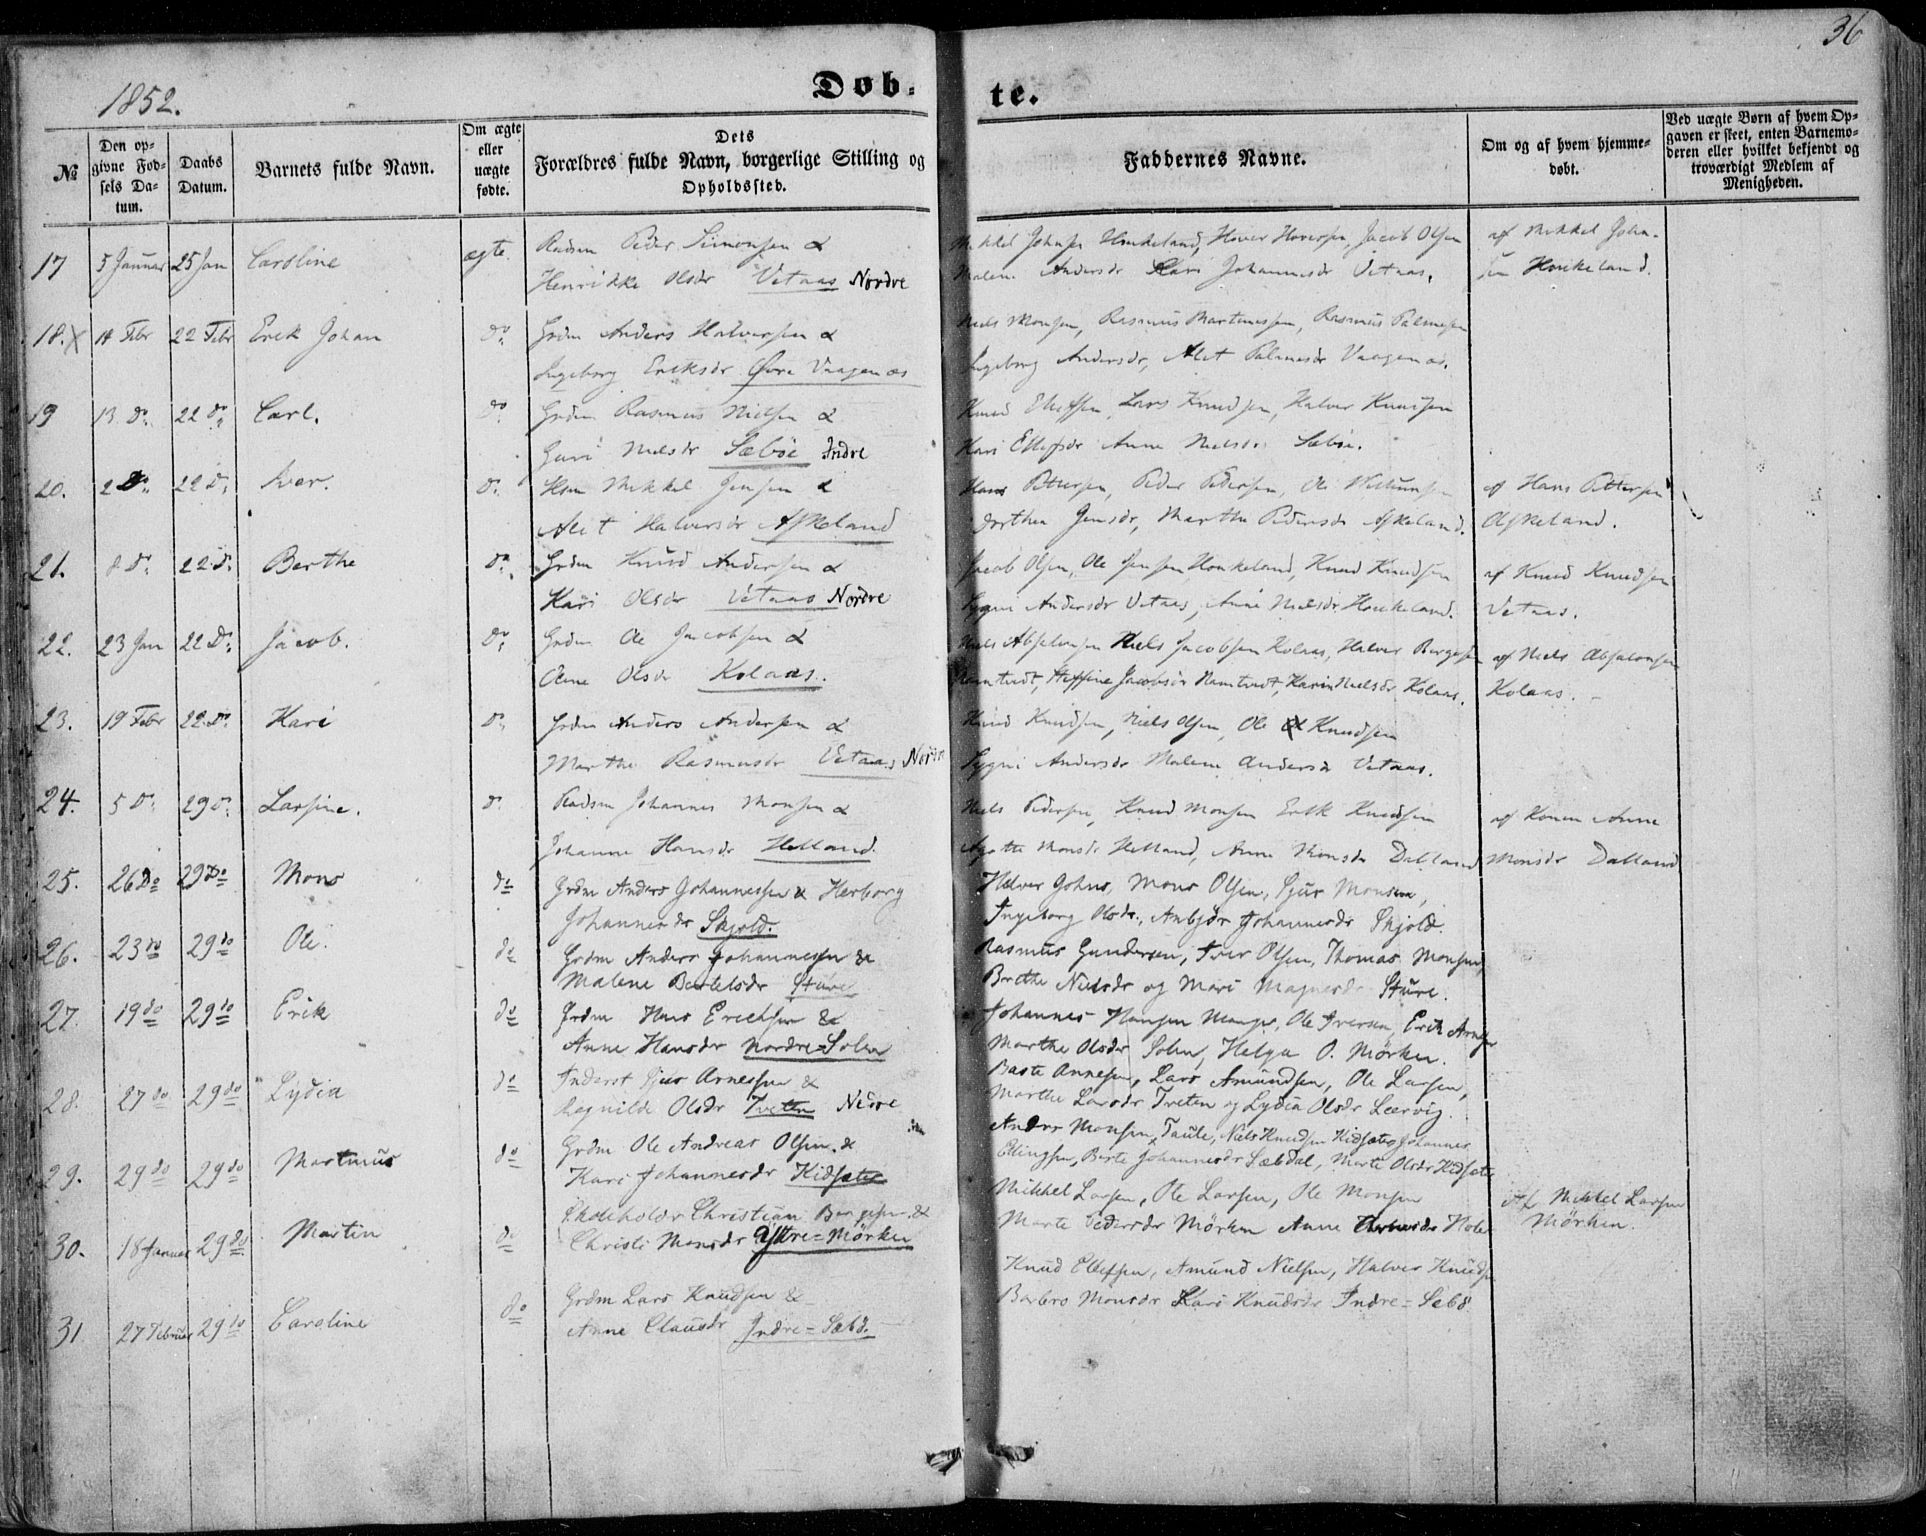 36
1852.
Døb-
te.
№
Den op-
givne Fød-
sels Da-
tum.
Daabs
Datum.
Barnets fulde Navn.
Om ægte
eller
uægte
fødte.
Dets
Forældres fulde Navn, borgerlige Stilling og
Opholdssted.
Faddernes Navne.
Om og af hvem hjemme-
døbt.
Ved uægte Børn af hvem Op-
gaven er skeet, enten Barnemo-
deren eller hvilket bekjendt og
troværdigt Medlem af
Menigheden.
17 5 Januar 25 Jan Caroline ægte. Peder Simonsen &
Henrikke Olsdr Vetaas Nordre
Mikkel Johnsen Houkeland, Haver Haversen, Jacob Olsen
Malene Andersdr Kari Johannesdr Vetaas.
af Mikkel John-
sen Houkeland.
18. 14 Febr 22 Febr Erek Johan do Grdm Anders Halversen &
Ingeborg Eriksdr Øvre Vaagenæs
Niels Monsen, Rasmus Martinussen, Rasmus Palmesen
Ingeborg Andersdr, Alet Palmesdr Vaagenæs.
19 13 do 22 do Carl. do Grdm Rasmus Nielsen &
Guri Nielsdr Sæbøe Indre
Knud Ellefsen, Lars Knudsen, Halver Knudsen
Kari Ellefsdr Anne Nielsdr Sæbøe.
20. 2 do 22 do Iver. do Hsm Mikkel Jensen &
Alet Halversdr Askeland
Hans Pettersen, Peder Pedersen, Ole
Dorthea Jensdr, Marthe Pedersdr Askeland.
af Hans Pettersen
Askeland.
21. 8 do 22 do Berthe do Grdm Knud Andersen &
Kari Olsdr Vetaas Nordre
Jacob Olsen, Ole Jensen Houkeland, Knud Knudsen
Sygni Andersdr Vetaas, Anne Nielsdr Houkeland.
af Knud Knudsen
Vetaas.
22. 23 Jan 22 do Jacob. do Grdm Ole Jacobsen &
Anne Olsdr Kolaas.
Niels Absalonsen Niels Jacobsen Kolaas, Halver Børgesen
Namtvedt, Steffine Jacobsdr Namtvedt, Kari Nielsdr Kolaas.
af Niels Absalonsen
Kolaas.
23. 19 Febr 22 do Kari do Grdm Anders Andersen &
Marthe Rasmusdr Vetaas Nordre
Knud Knudsen, Niels Olsen, Ole Knudsen
Sygni Andersdr Malene Andersdr Vetaas.
24. 5 do 29 do Larsine. do Johannes Monsen &
Johanne Hansdr Helland
Niels Pedersen, Knud Monsen Erik Knudsen
Agathe Monsdr Helland, Anne Monsdr Dalland
af Konen Anne
Monsdr Dalland
25. 26 do 29 do Mons do Grdm Anders Johannessen & Herborg
Johannesdr Skjold.
Halver Johns, Mons Olsen, Sjur Monsen,
Ingeborg Olsdr., Anbjør Johannesdr Skjold.
26. 23 do 29 do Ole. do Grdm Anders Johannessen &
Malene Bertelsdr Sture
Rasmus Gundersen, Iver Olsen, Thomas Monsen,
Brethe Nielsdr og Mari Magnesdr Sture.
27. 19 do 29 do Erik do Grdm Hans Erichsen &
Anne Hansdr Nordre=Solem
Johannes Hansen Manger, Ole Iversen, Erik Arnesen
Marthe Olsdr Solem, Helga O. Mørken.
28. 27 do 29 do Lydia do Inderst Sjur Arnessen &
Ragnilde Olsdr Tveten Nedre
Baste Annesen, Lars Amundsen, Ole Larsen,
Marthe Larsdr Tveten og Lydia Olsdr Leervig.
29. 29 do 29 do Martinus do Grdm Ole Andreas Olsen &
Kari Johannesdr Kidsæter
Anders Monsen Taule, Niels Knudsen Kidsæter, Johannes
Ellingsen, Berte Johannesdr Sæbdal, Marte Olsdr Kidsæter
30. 18 Januar 29 do Martin do Skoleholder Christian Børgesen &
Christi Monsdr Ystre=Mørken
Mikkel Larsen, Ole Larsen, Ole Monsen
Marte Pedersdr Mørken Anne
Af Mikkel Larsen
Mørken.
31 27 Februar 29 do Caroline do Grdm Lars Knudsen &
Anne Clausdr Indre=Sæbø.
Knud Ellefsen, Amund Nielsen, Halver Knudsen
Barbro Monsdr Kari Knudsdr Indre=Sæbø